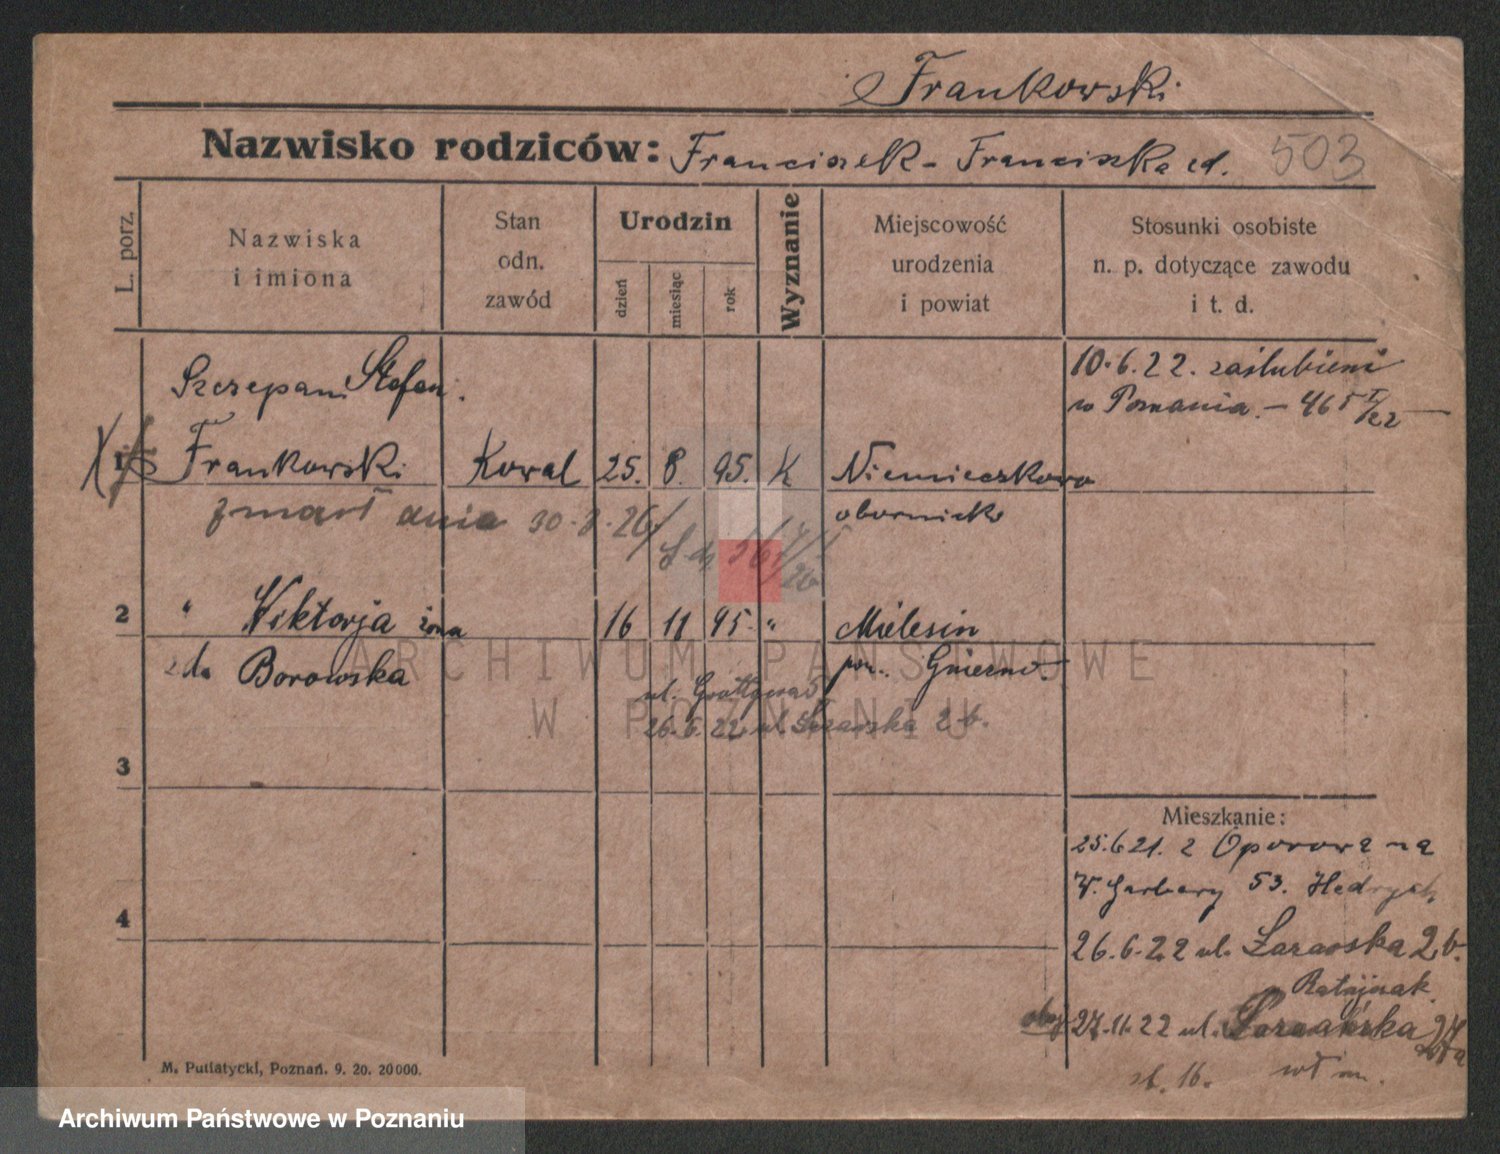 Frankowski
Nazwisko rodziców: Franciszek - Franciszka ed. 503
L. porz.
Nazwiska
i imiona
Stan
odn.
zawód
Urodzin
dzień
miesiąc
rok
Wyznanie
Miejscowość
urodzenia
i powiat
Stosunki osobiste
n. p. dotyczące zawodu
i t. d.
Szczepan Stefan
10.6.22. zaślubieni
w Poznaniu
1 Frankowski Kowal 25. 8. 95. K Niemieczkowo
zmarł dnia 30-3-26 obornicki
2 " Wiktorja żona 16 11 95. " Mielesin
Borowska pow. Gniezno.
ul. Grottgera 5
26.6.22 ul. Łazarska 2-b.
3
Mieszkanie:
25.6 21. z Oporowa na
W. Garbary 53. Hedrych
4
26.6.22 ul. Łazarska 2b.
Ratajczak
27.11.22 ul. Łazarska
M. Putiatycki, Poznań. 9. 20. 20000.
ARCHIWUM PAŃSTWOWE
W POZNANIU
Archiwum Państwowe w Poznaniu